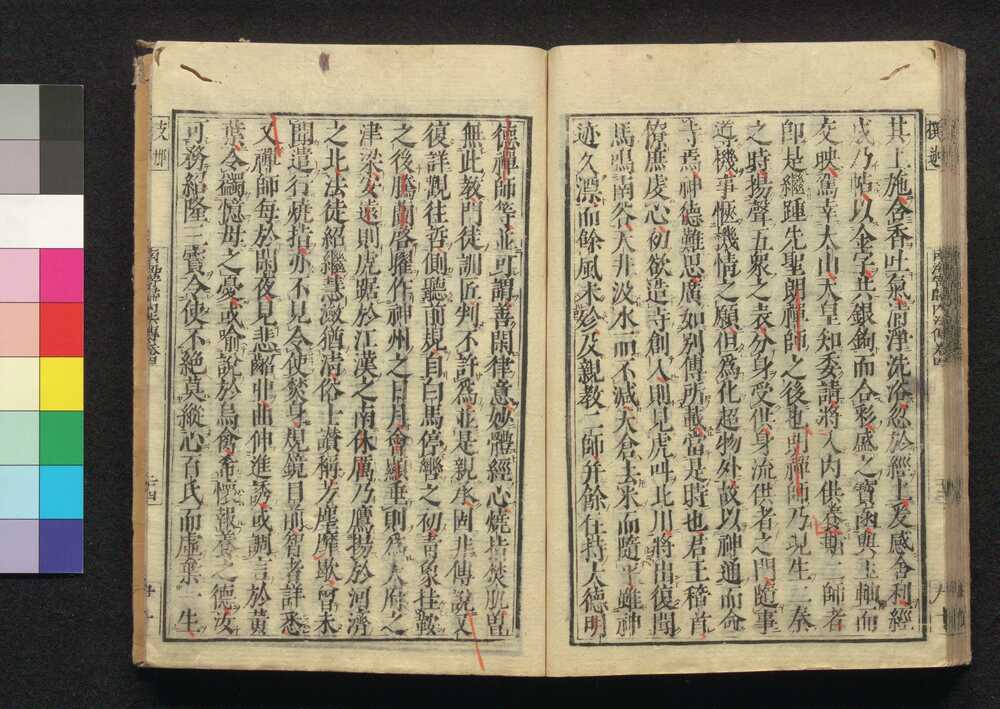 其上施金香吐氣清潭洗浴忽於經上爰感舍利經
成乃帖以金字共銀鉤而合彩盛之寶函與玉軸而
交映駕幸太山天皇知委請將入內供養斯二師者
即是繼踵先聖朗禪師之後也朗禪師乃現生二秦
之時揚聲五衆之表分身受供身流供者之門隨事
導機事愜機情之願但為化超物外故以神通而命
寺焉神德難思廣如別傳所載當是時也君王稽首
僚庶虔心初欲造寺創入則見虎叫北川將出復聞
馬鳴南谷天井汲水而不減天倉去米而隨平雖神
迹久湮而餘風未殄及親教二師并餘住持大德明
德禪師等並可謂善閑律意妙體經心燒指焚肌曾
無此教門徒訓匠判不許為並是親承固非傳說又
復詳觀往哲側聽前規自白馬停轡之初青象挂鞍
之後騰蘭啓曜作神州之日月會顯垂則為天府之
津梁安遠則虎踞於江漢之南休厲乃鷹揚於河濟
之北法徒紹繼慧瀓猶清俗士讚稱芳塵靡歇曾未
聞遣行燒指亦不見令使焚身規鏡目前智者詳悉
又禪師每於閑夜見悲齠丱曲伸進誘或調言於黃
葉令蠲憶母之憂或喻說於烏禽希懷報養之德汝
可務紹隆三寶令使不絕莫縱心百氏而虛棄一生